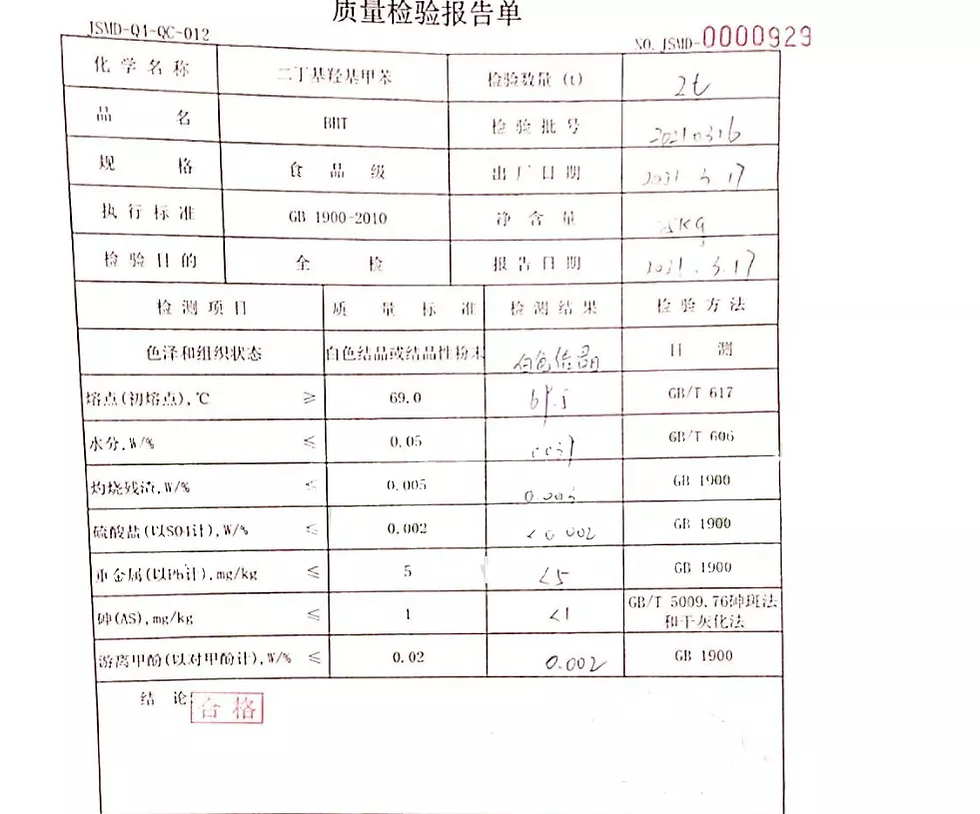 质量检验报告单
JSMD-Q1-QC-012
NO. JSMD-0000929
化学名称 二丁基羟基甲苯 检验数量(t) 2t
品 名 BHT 检验批号 20210316
规 格 食品级 出厂日期 2021.3.17
执行标准 GB 1900-2010 净含量 KG
检验目的 全 检 报告日期 2021.3.17
检测项目 质量标准 检测结果 检验方法
色泽和组织状态 白色结晶或结晶性粉末 白色结晶 目测
熔点(初熔点),℃ ≥ 69.0 GB/T 617
水分,W/% ≤ 0.05 GB/T 606
灼烧残渣,W/% ≤ 0.005 GB 1900
硫酸盐(以SO4计),W/% ≤ 0.002 <0.002 GB 1900
重金属(以Pb计),mg/kg ≤ 5 <5 GB 1900
砷(AS),mg/kg ≤ 1 <1 GB/T 5009.76砷斑法
和干灰化法
游离甲酚(以对甲酚计),W/% ≤ 0.02 0.002 GB 1900
结 论: 合格